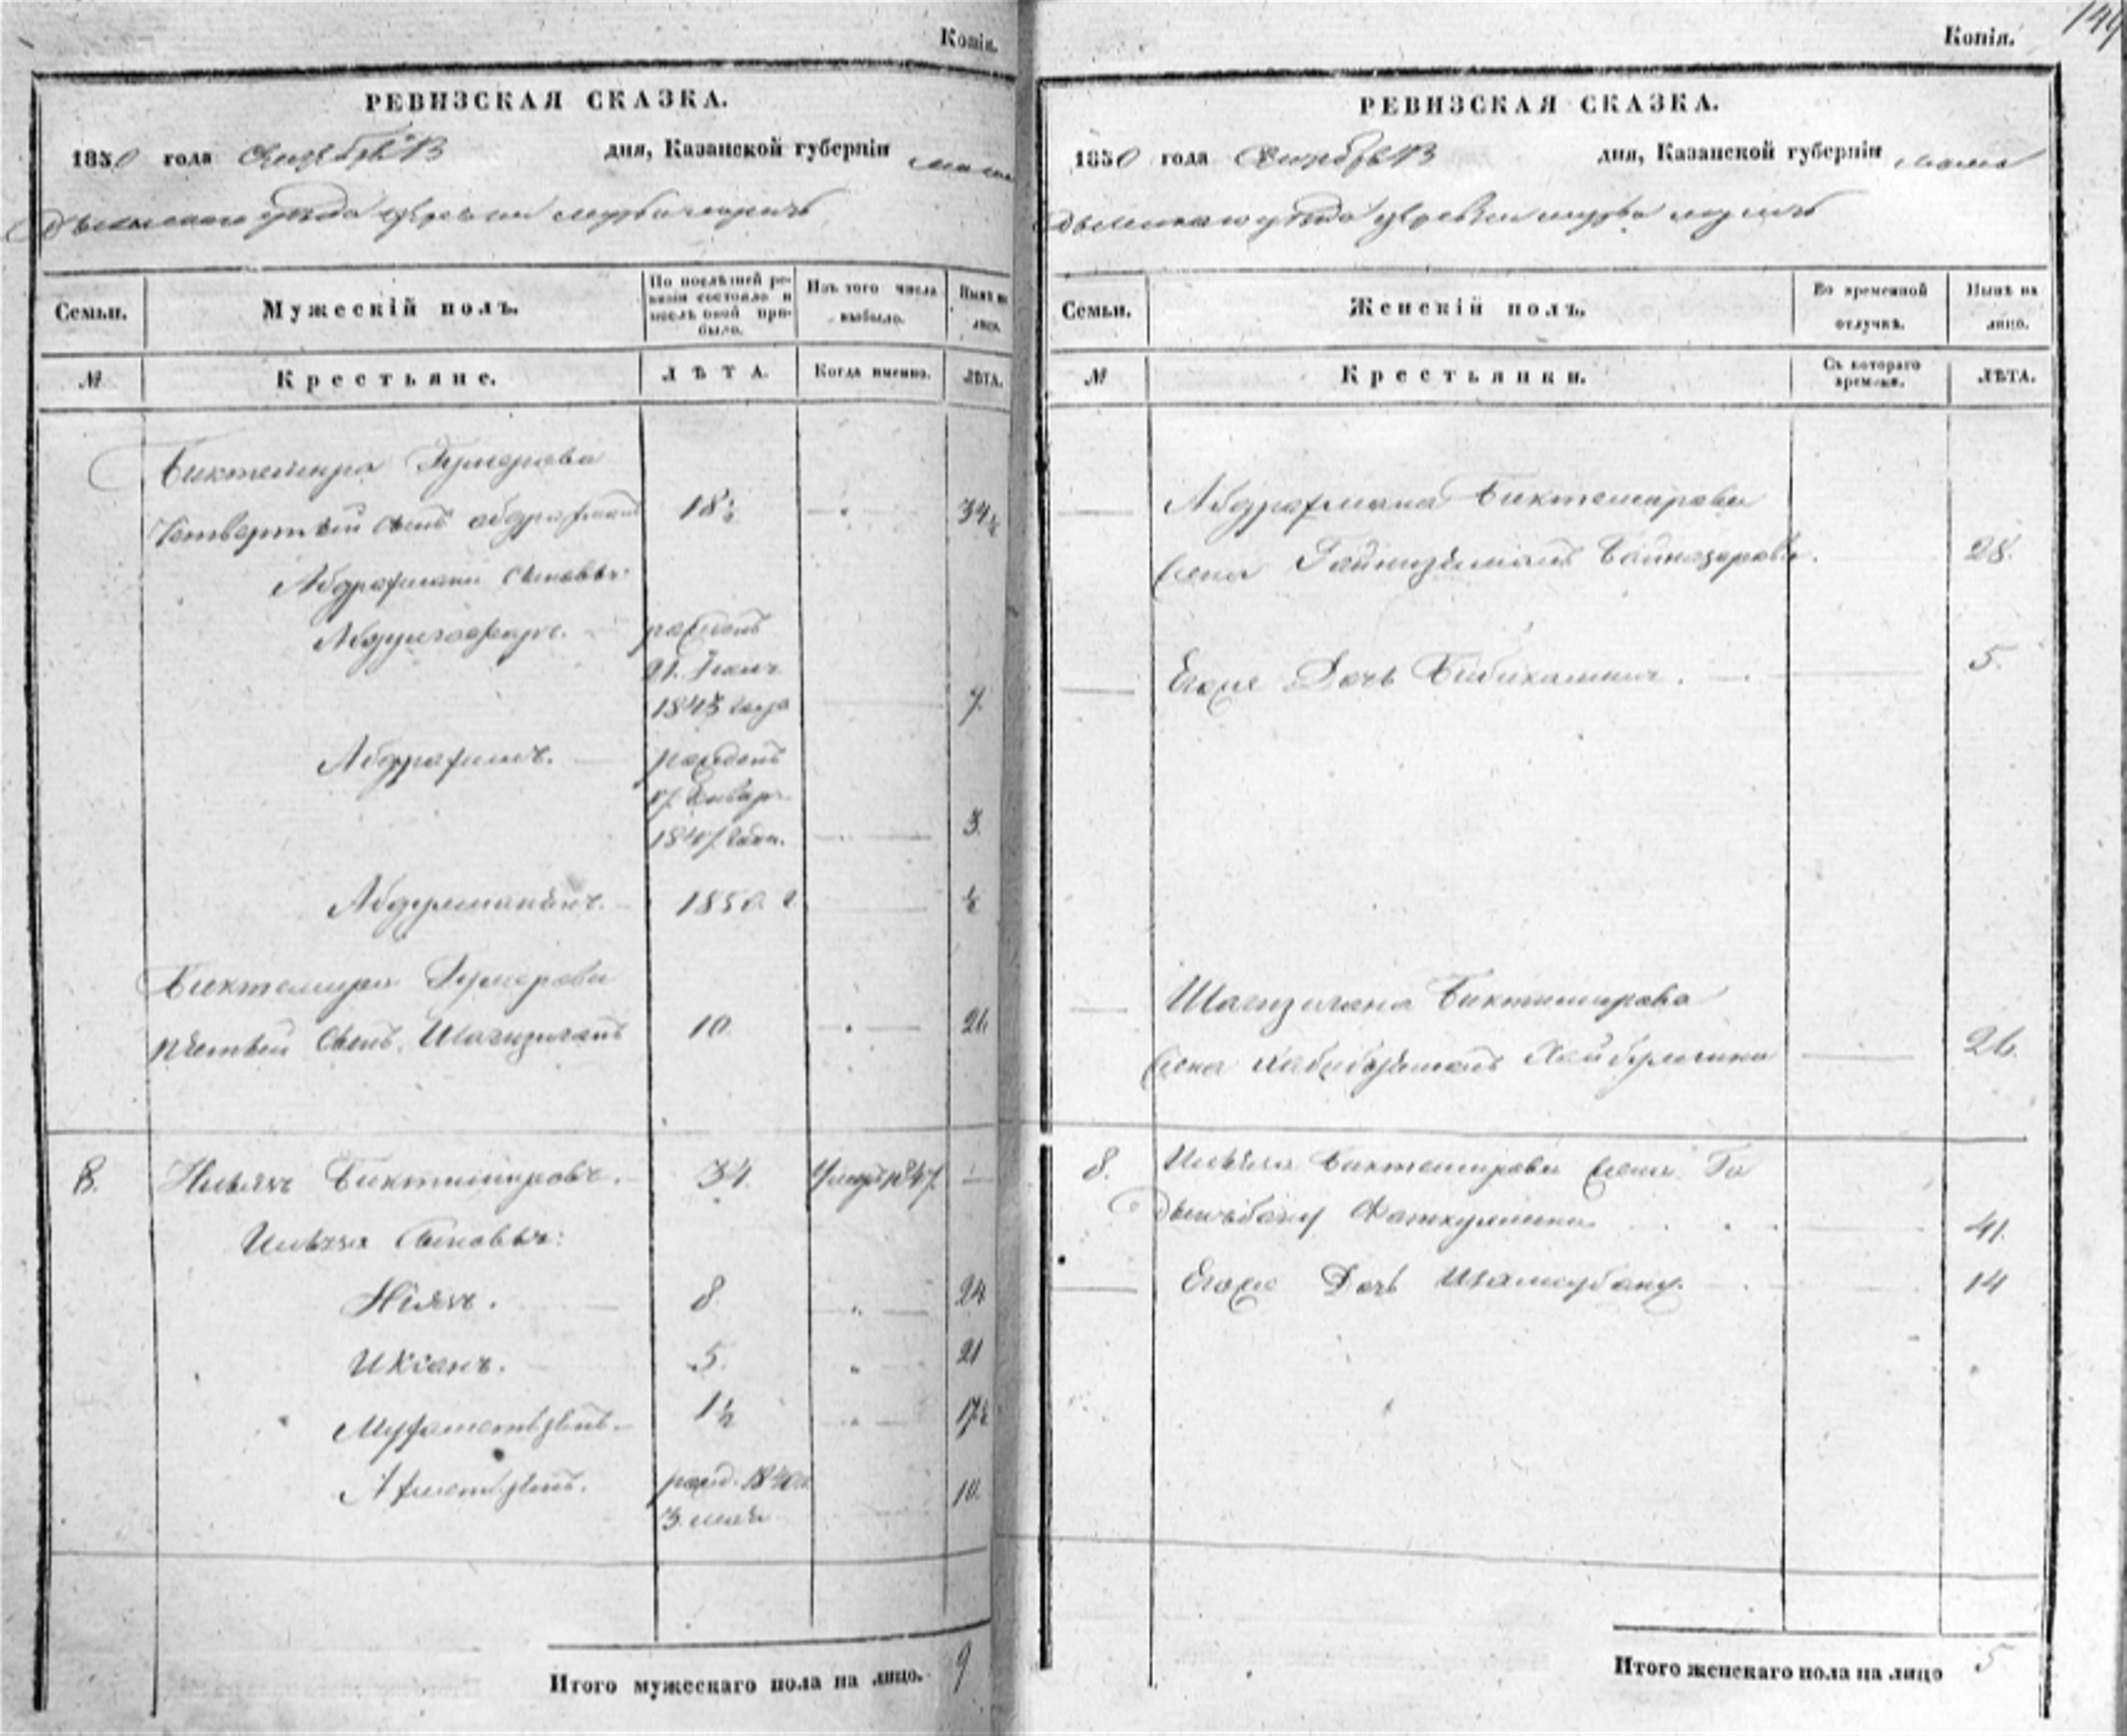 Копія.
РЕВИЗСКАЯ СКАЗКА.
1850 года Октября 13 дня, Казанской губерніи мама
дышскаго уѣзда деревни
Семьи.
Мужескій полъ.
По послѣдней ре-
визіи состояло и
послѣ оной при-
было.
Изъ того числа
выбыло.
Нынѣ на
лицо.
№
Крестьяне.
ЛѢТА.
Когда именно.
ЛѢТА.
Биктемира Гумерова
Четвертый сынъ абдрафманъ 18½ 34½
Абдрафмана сыновья:
рожденъ
21.
1843 года 7.
рожденъ
17. Января
1847 года. 3.
1850. г ½
Биктемира Гумерова
пятый сынъ, Шагизиганъ 10. 26.
8. Ильясъ Биктимировъ. 34. Умеръ 1847.
Ильяса сыновья:
Ніязъ. 8. 24
Иксанъ. 5. 21
Мухаметзянъ. 1½ 17½
Ахметзянъ. рожд. 1840 г.
3. мая 10.
Итого мужескаго пола на лицо. 9
Копія. 144
РЕВИЗСКАЯ СКАЗКА.
1850 года Октября 13 дня, Казанской губерніи мама
дышскаго уѣзда деревни
Семьи.
Женскій полъ.
Во временной
отлучкѣ.
Нынѣ на
лицо.
№
Крестьянки.
Съ котораго
времени.
ЛѢТА.
Абдрафмана Биктемирова
жена Байназарова. 28.
Егоже Дочь Бибикамиля. 5.
Шагизигана Биктимирова
жена Хабибзямалъ 26.
8. Ильяса Биктемирова жена Га
Фаткуллина 41.
Егоже Дочь Шамсубану. 14
Итого женскаго пола на лицо 5